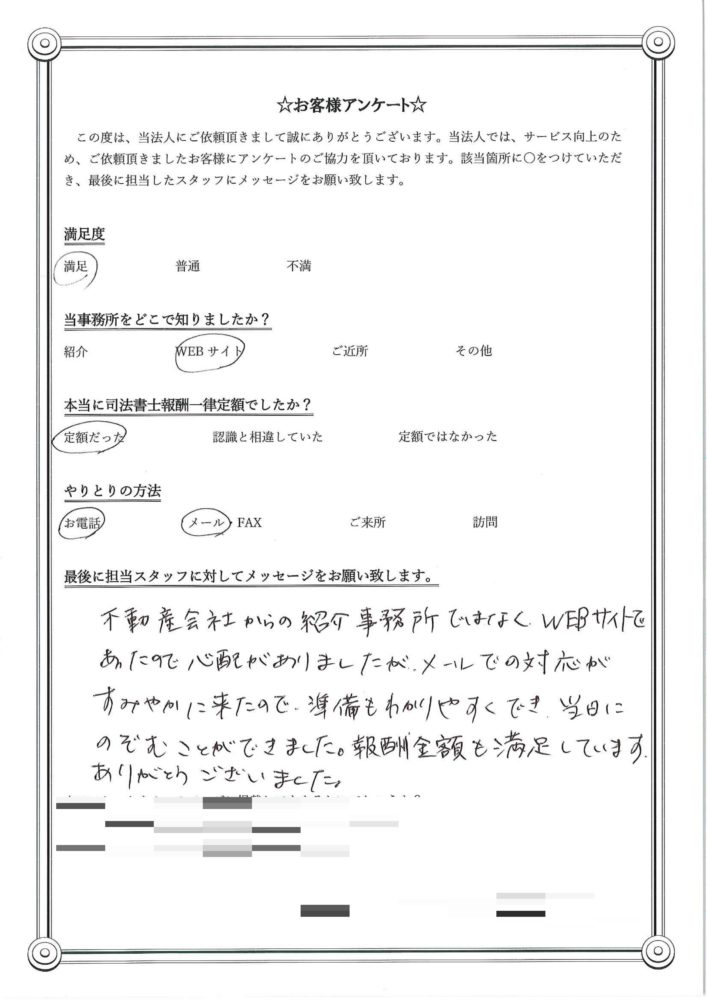 ☆お客様アンケート☆
この度は、当法人にご依頼頂きまして誠にありがとうございます。当法人では、サービス向上のた
め、ご依頼頂きましたお客様にアンケートのご協力を頂いております。該当箇所に〇をつけていただ
き、最後に担当したスタッフにメッセージをお願い致します。
満足度
満足 普通 不満
当事務所をどこで知りましたか？
紹介 WEBサイト ご近所 その他
本当に司法書士報酬一律定額でしたか？
定額だった 認識と相違していた 定額ではなかった
やりとりの方法
お電話 メール・FAX ご来所 訪問
最後に担当スタッフに対してメッセージをお願い致します。
不動産会社からの紹介事務所ではなく、WEBサイトで
あったので心配がありましたが、メールでの対応が
すみやかに来たので、準備もわかりやすくでき、当日に
のぞむことができました。報酬金額も満足しています。
ありがとうございました。